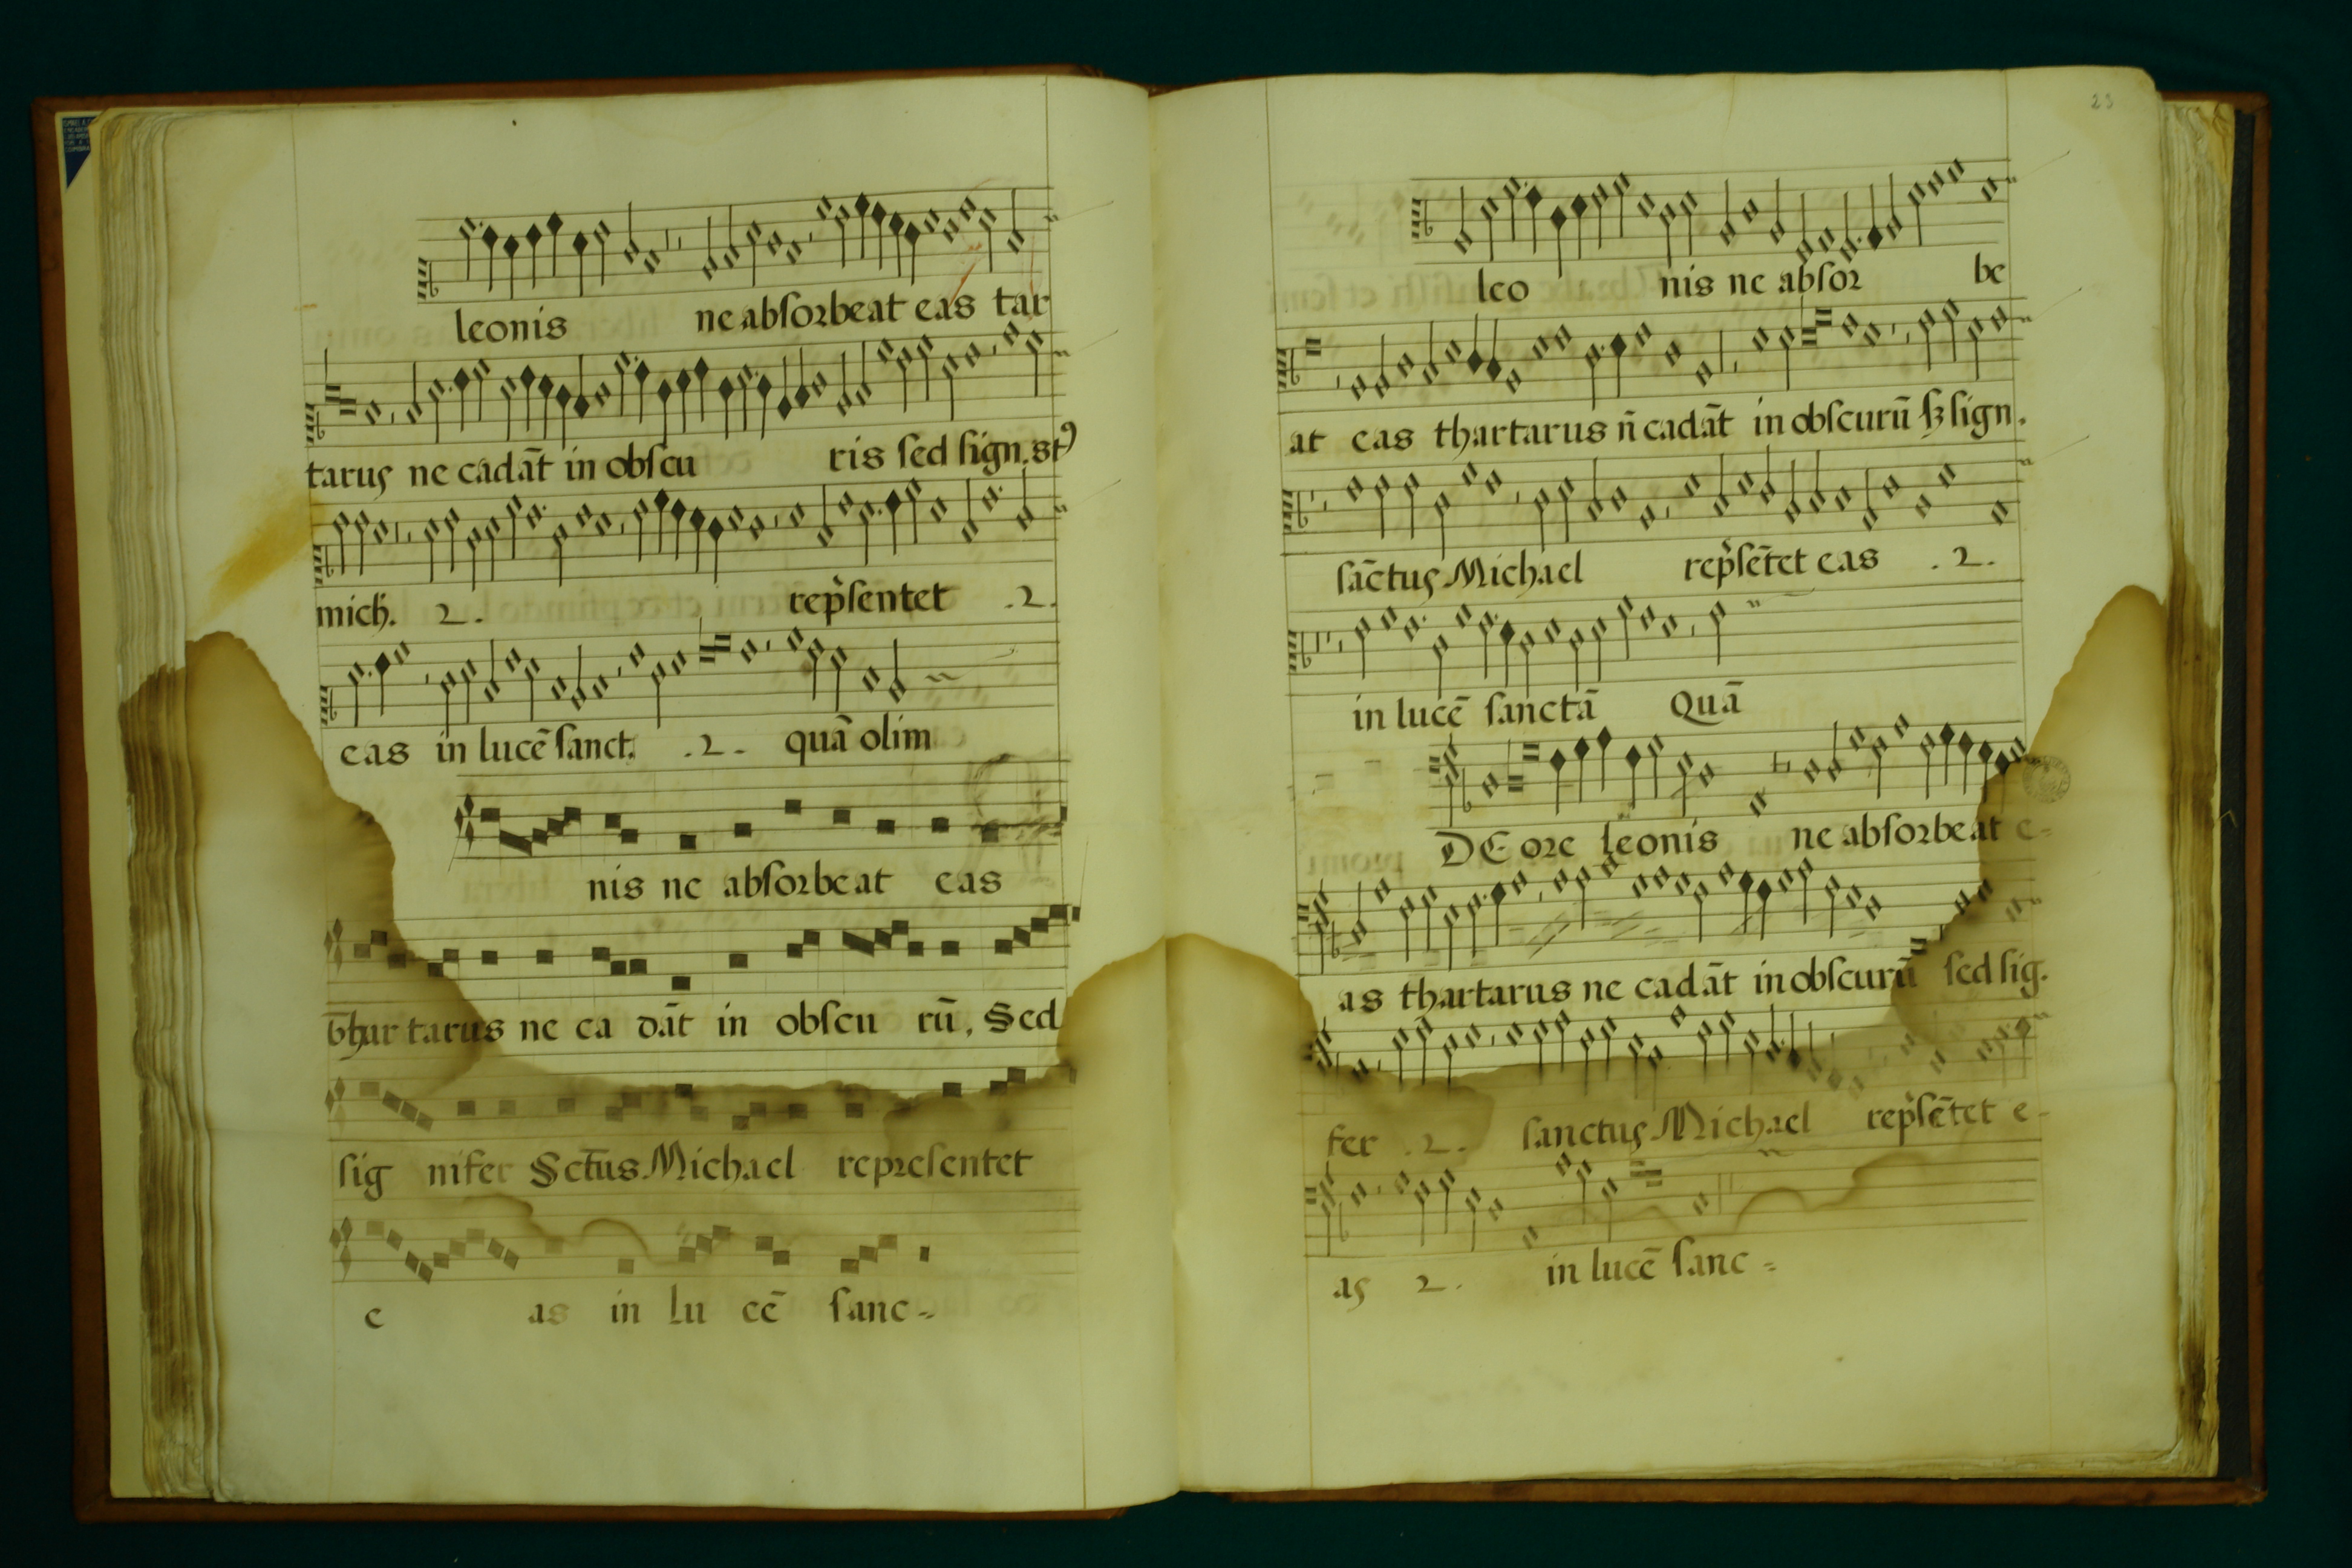 leonis ne absorbeat eas tar
tarus ne cadāt in obscu ris sed sign. st9
mich. 2.
repsentet .2.
eas in lucē sanct. .2. quā olim
nis ne absorbeat eas
thar tarus ne ca dāt in obscu rū, Sed
sig nifer Sctūs Michael representet
e as in lu cē sanc-
23
leo nis ne absor be
at eas thartarus n̄ cadāt in obscurū sign.
sāctus Michael repsētet eas .2.
in lucē sanctā Quā
DE ore leonis ne absorbeat e-
as thartarus ne cadāt in obscurū sed sig.
fer .2. sanctus Michael repsētet e-
as 2. in lucē sanc-